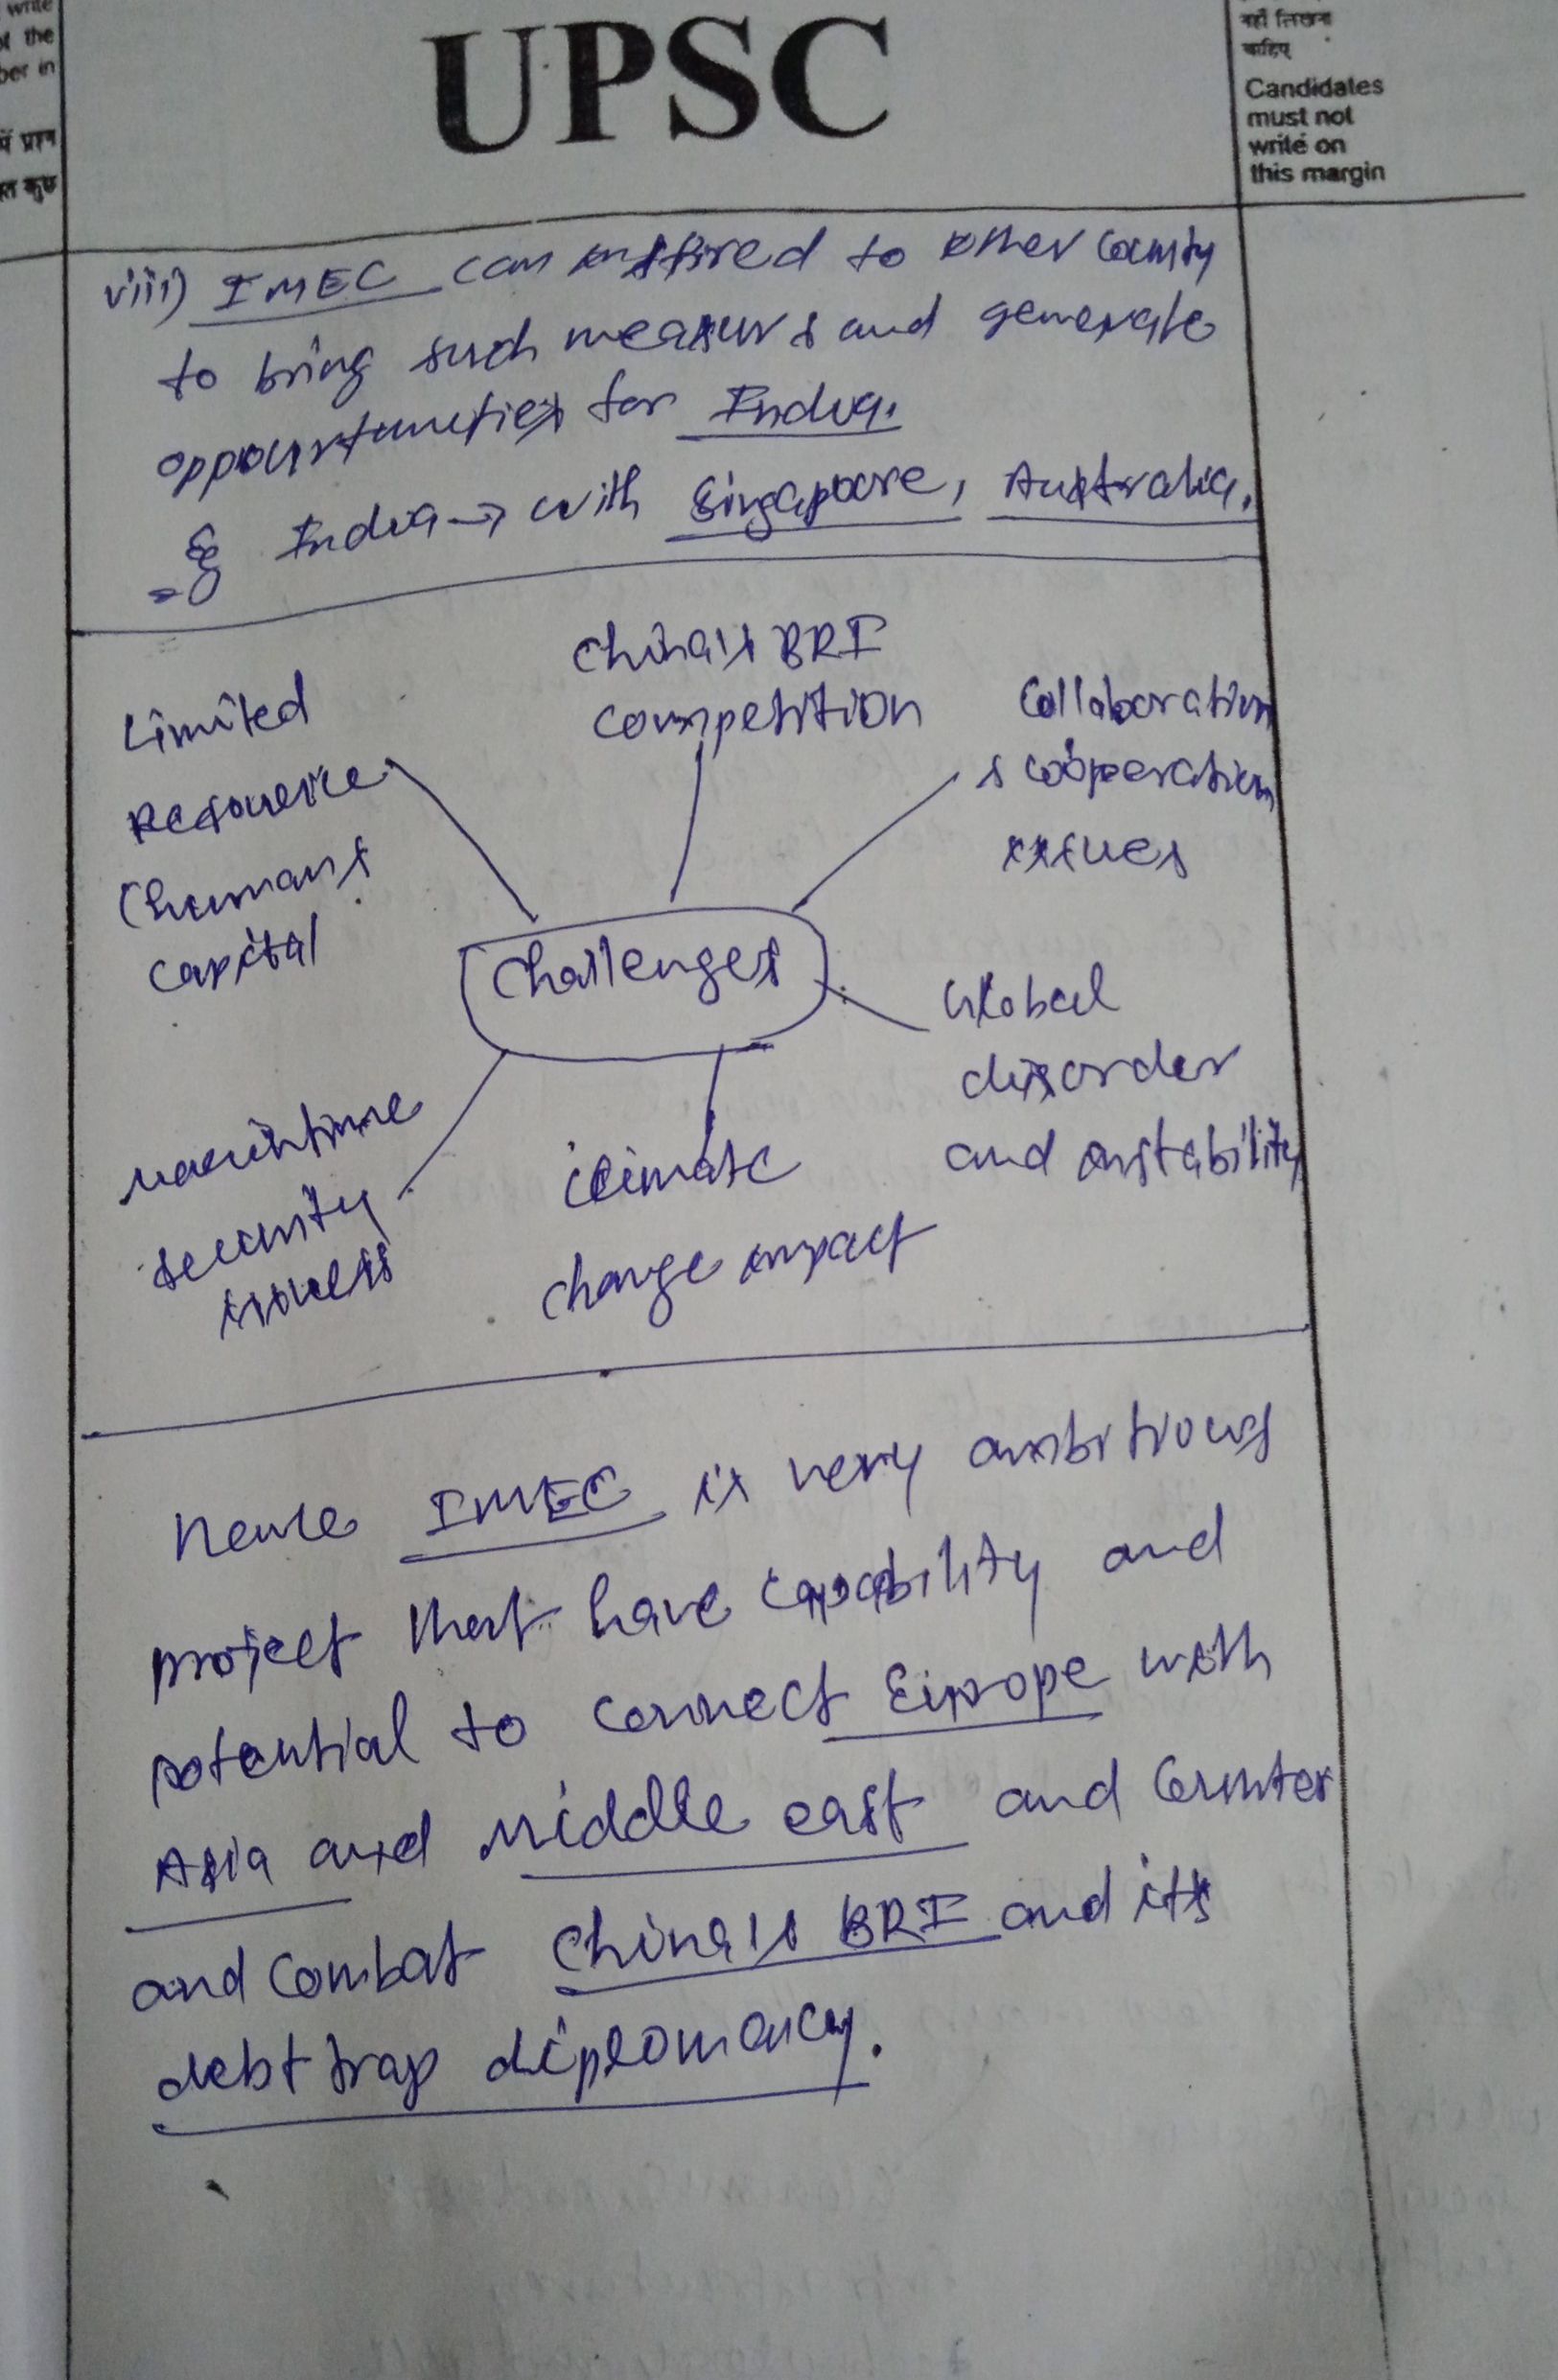 write
of the
ber in
में प्रश्न
कुछ
UPSC
नहीं लिखना
चाहिए
Candidates
must not
write on
this margin
viii) IMEC can inspired to other country
to bring such measurs and generate
opportunities for India.
Eg India → with Singapore, Australia.
China's BRI
competition
Limited
Resource
(humans
capital
Collaboration
& cooperation
issues
Challenges
Global
disorder
and instability
maritime
security
issuess
climate
change impact
Hence IMEC is very ambitious
project that have capability and
potential to connect Europe with
Asia and Middle east and Counter
and Combat China's BRI and its
debt trap diplomacy.